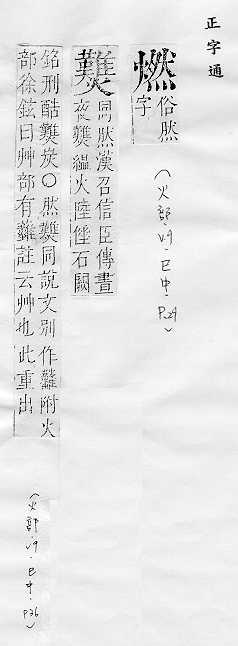 正字通
燃俗然
字
(火部 v.9.巳中.P.29)
㸐同然漢召信臣傳晝
夜㸐緼火陸倕石闕
銘刑酷㸐炭○然㸐同說文別作䕼附火
部徐鉉曰艸部有䕼註云艸也此重出
(火部.v.9.巳中.P.36)